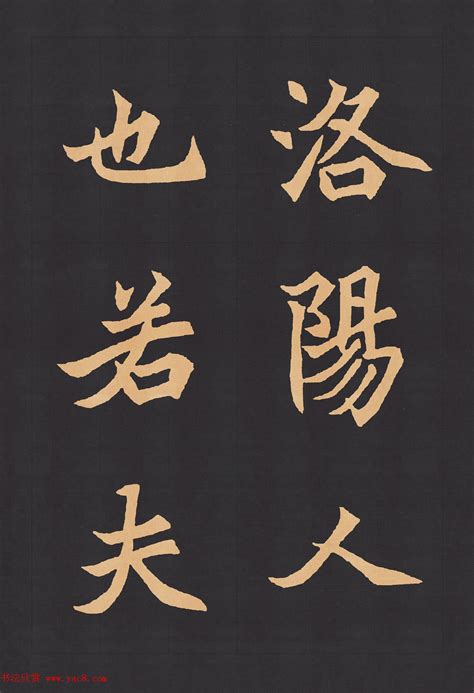 洛陽人
也若夫
书法欣赏 www.yac8.com